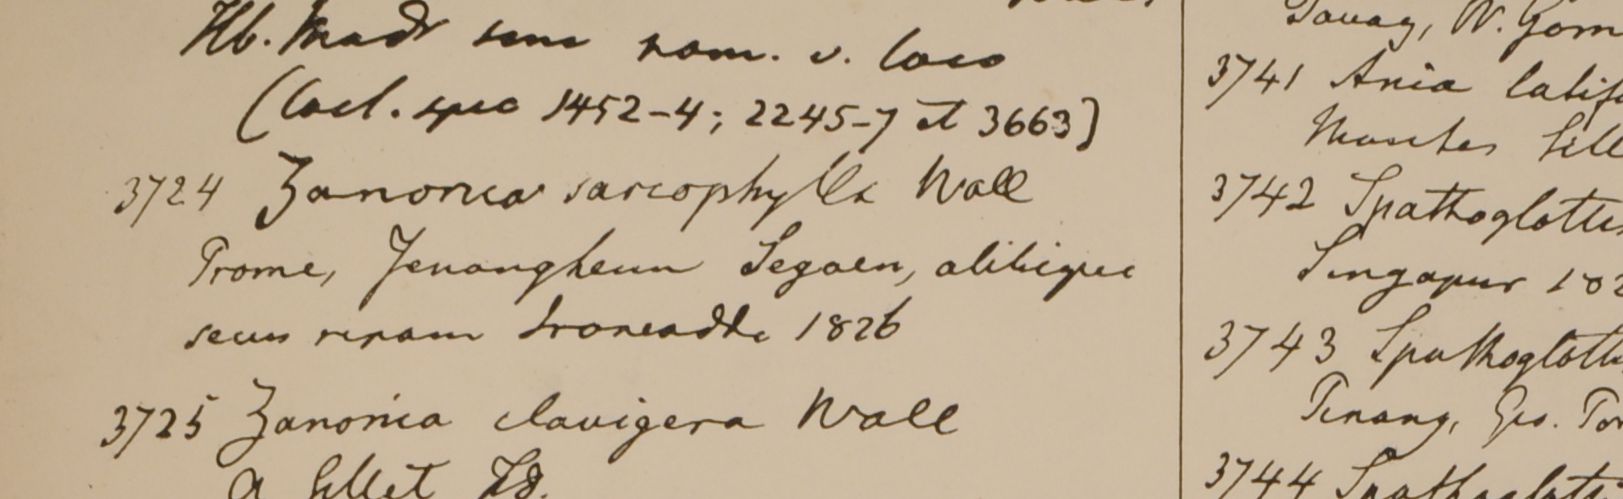 Hb. Madr sine nom. v. loco
(Cacl. spec 1452-4; 2245-7 et 3663)
3724 Zanonia sarcophylla Wall
Prome, Yenangheun Segaen, alibique
secus ripam Irawaddi 1826
3725 Zanonia clavigera Wall
a Sillet FD.
Tavay, W. Gom
3741 Ania latifo
Montes Sill
3742 Spathoglottis
Singapur 182
3743 Spathoglottis
Penang, Geo. Por
3744 Spathoglotti